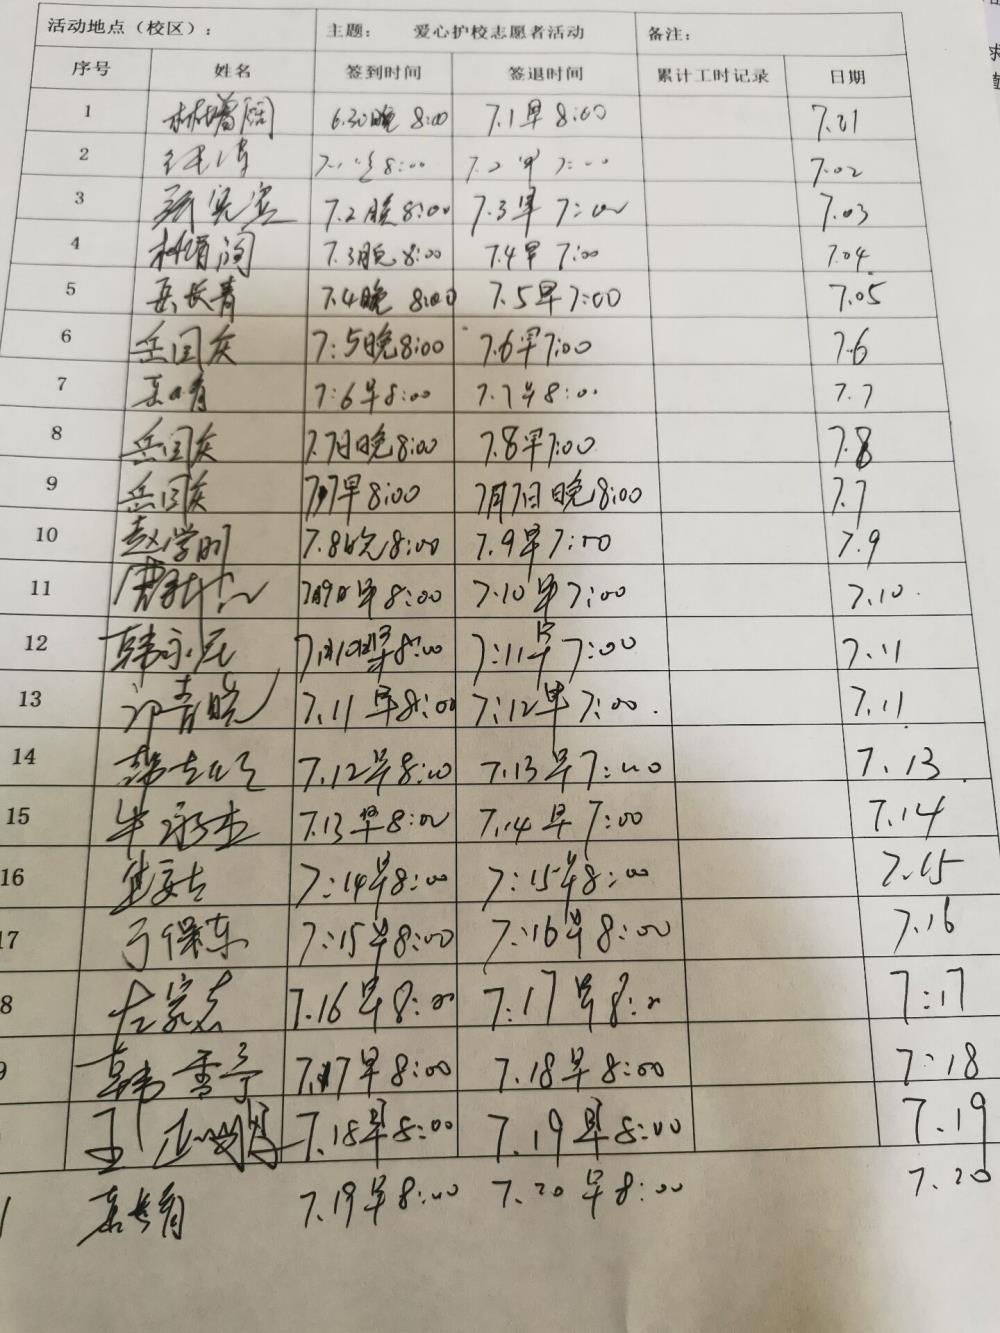 活动地点（校区）： 主题： 爱心护校志愿者活动 备注：
序号 姓名 签到时间 签退时间 累计工时记录 日期
1 林增阔 6.30晚 8:00 7.1早 8:00 7.01
2 7.1 8:00 7.2早 7:00 7.02
3 7.2晚8:00 7.3早 7:00 7.03
4 林增阔 7.3晚 8:00 7.4早 7:00 7.04
5 岳长青 7.4晚 8:00 7.5早7:00 7.05
6 岳国庆 7:5晚8:00 7.6早7:00 7.6
7 7:6早8:00 7.7早8:00 7.7
8 岳国庆 7.7日晚8:00 7.8早7:00 7.8
9 岳国庆 7.7早8:00 7月7日晚8:00 7.7
10 赵学明 7.8晚8:00 7.9早7:00 7.9
11 7月9日早8:00 7.10早7:00 7.10
12 韩永 7.10早8:00 7:11早7:00 7.11
13 青晓 7.11早8:00 7:12早7:00 7.11
14 韩 7.12早8:00 7.13早7:00 7.13
15 牛永杰 7.13早8:00 7.14早7:00 7.14
16 7:14早8:00 7:15早8:00 7.15
17 保东 7:15早8:00 7:16早8:00 7.16
8 左家志 7.16早8:00 7:17早8:00 7:17
9 韩雪 7.17早8:00 7.18早8:00 7:18
王 7.18早8:00 7.19早8:00 7.19
1 袁长青 7.19早8:00 7.20早8:00 7.20
求